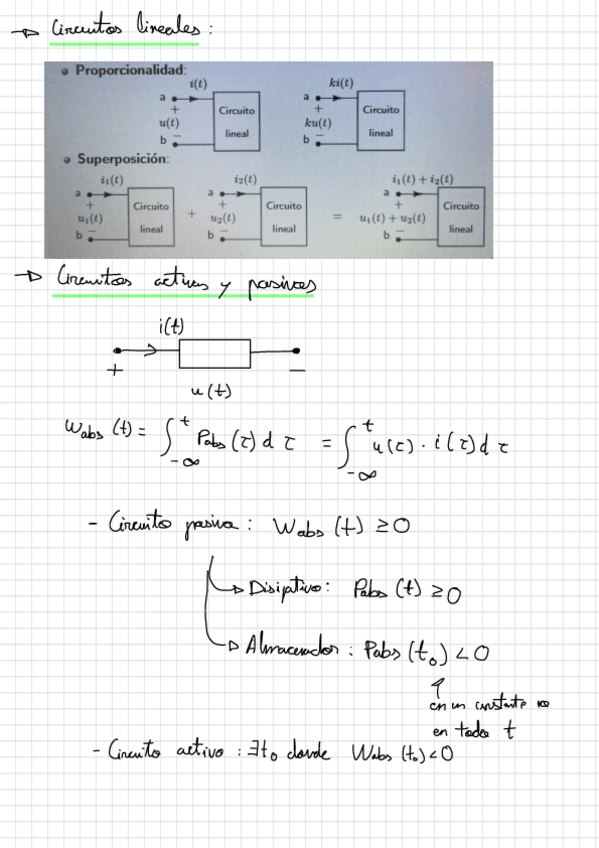 → Circuitos lineales:
• Proporcionalidad:
i(t) ki(t)
a a
+ Circuito + Circuito
u(t) ku(t)
b − lineal b − lineal
• Superposición:
i₁(t) i₂(t) i₁(t) + i₂(t)
a a a
+ Circuito + Circuito + Circuito
u₁(t) + u₂(t) = u₁(t) + u₂(t)
b − lineal b − lineal b − lineal
→ Circuitos activos y pasivos
i(t)
+ −
u(t)
Wabs (t) = ∫_{-∞}^{t} Pabs (τ) d τ = ∫_{-∞}^{t} u(τ) · i(τ) d τ
- Circuito pasivo: Wabs (t) ≥ 0
→ Disipativo: Pabs (t) ≥ 0
→ Almacenador: Pabs (t₀) < 0
↑
en un instante no
en todo t
- Circuito activo: ∃t₀ donde Wabs (t₀) < 0